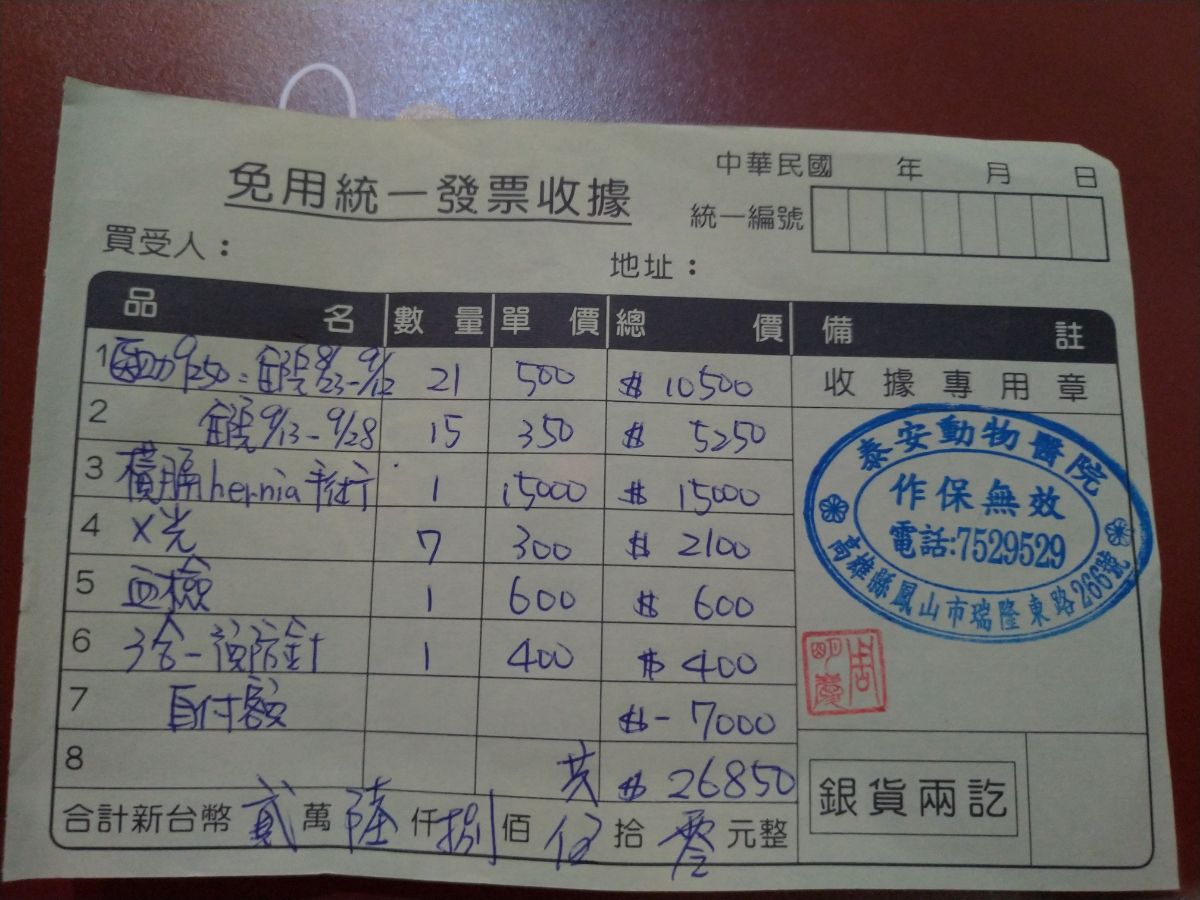 中華民國 年 月 日
免用統一發票收據
統一編號
買受人：
地址：
品名 數量 單價 總價 備註
1 9/250 = 住院 8/23-9/12 21 500 $ 10500
收據專用章
2 住院 9/13-9/28 15 350 $ 5250
3 橫膈hernia手術 1 15000 $ 15000
4 X光 7 300 $ 2100
5 血檢 1 600 $ 600
6 3合一預防針 1 400 $ 400
7 自付額 $ -7000
8 共 $ 26850
合計新台幣 貳 萬 陸 仟 捌 佰 伍 拾 零 元整
泰安動物醫院
作保無效
電話:7529529
高雄縣鳳山市瑞隆東路266號
周
明慶
銀貨兩訖